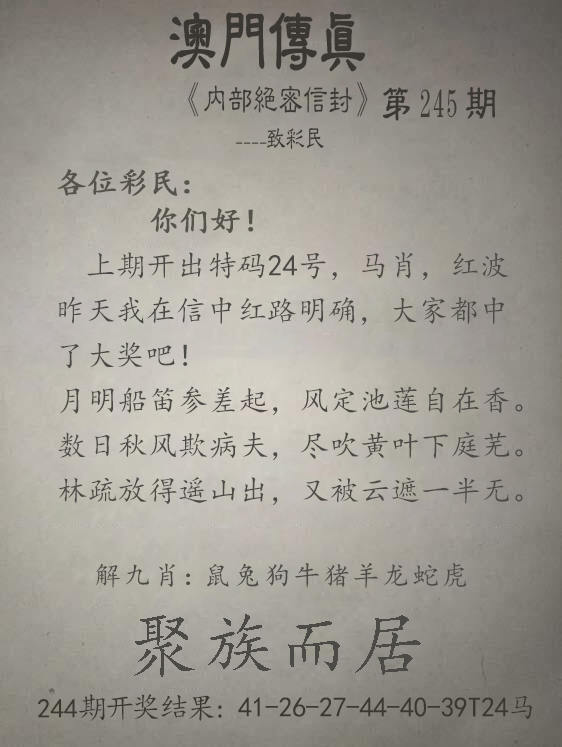 澳門傳眞
《内部絕密信封》第245期
----致彩民
各位彩民：
你们好！
上期开出特码24号，马肖，红波
昨天我在信中红路明确，大家都中
了大奖吧！
月明船笛参差起，风定池莲自在香。
数日秋风欺病夫，尽吹黄叶下庭芜。
林疏放得遥山出，又被云遮一半无。
解九肖：鼠兔狗牛猪羊龙蛇虎
聚族而居
244期开奖结果：41-26-27-44-40-39T24马